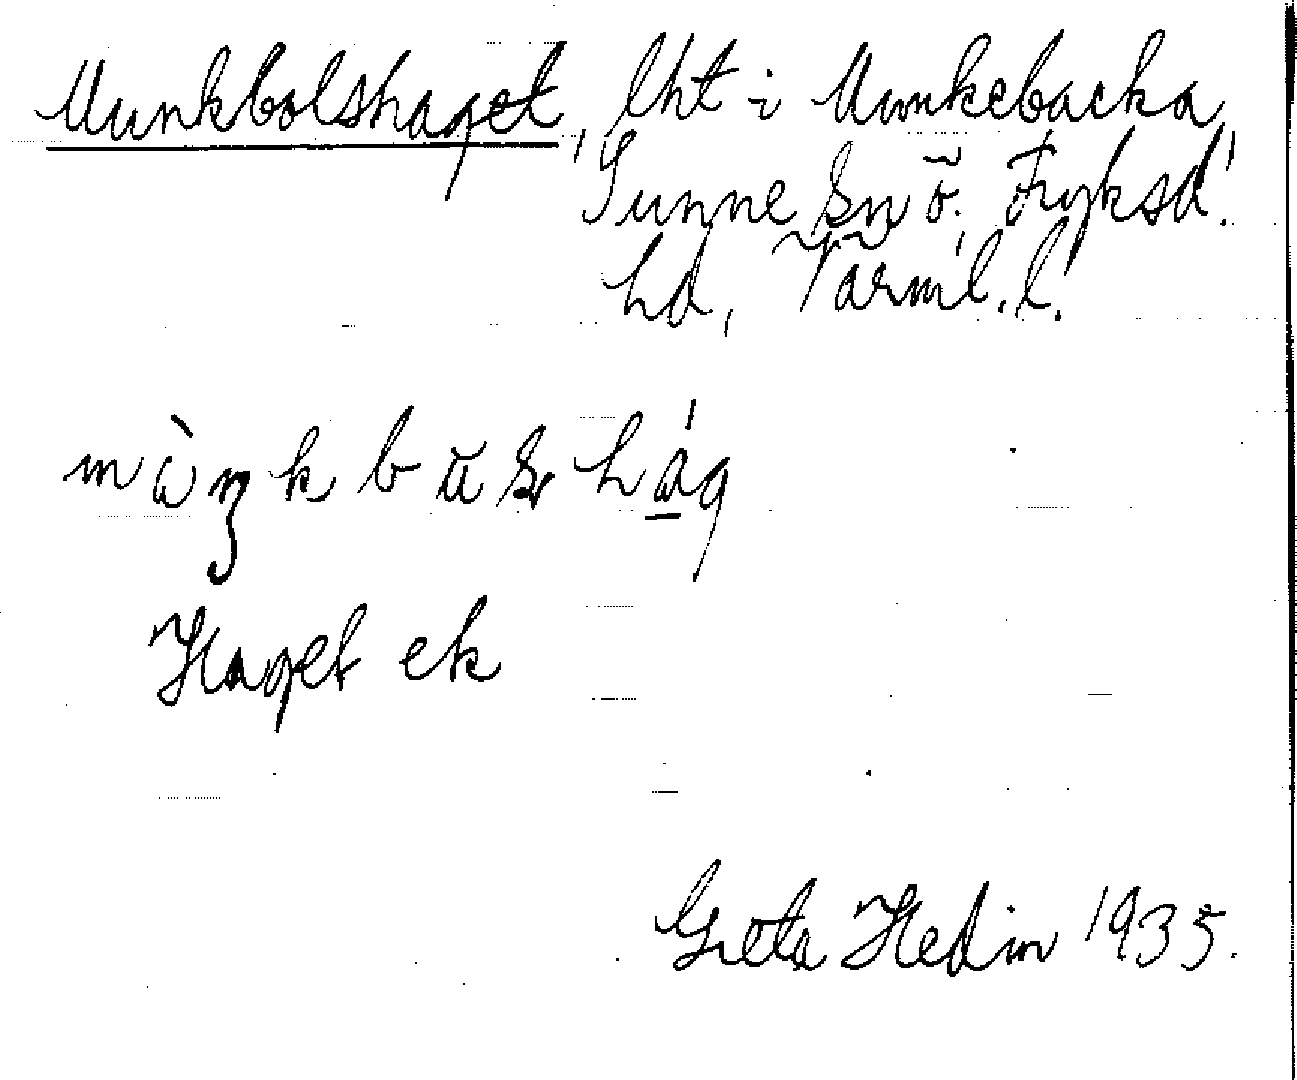 Munkbolshaget, lht i Munkebacka,
Sunne sn ö. Fryksd.
hd, Värml. l.
mùŋkbushág
Haget ek
Greta Hedin 1935.